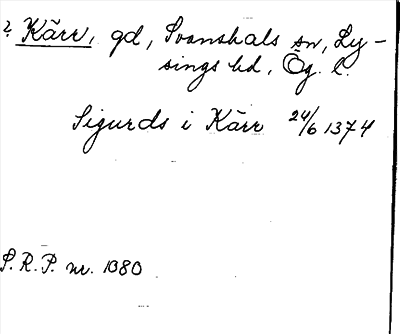 ? Kärr, gd, Svanshals sn, Ly-
sings hd, Ög. l.
Sigurds i Kärr 24/6 1374
S.R.P. nr. 1080